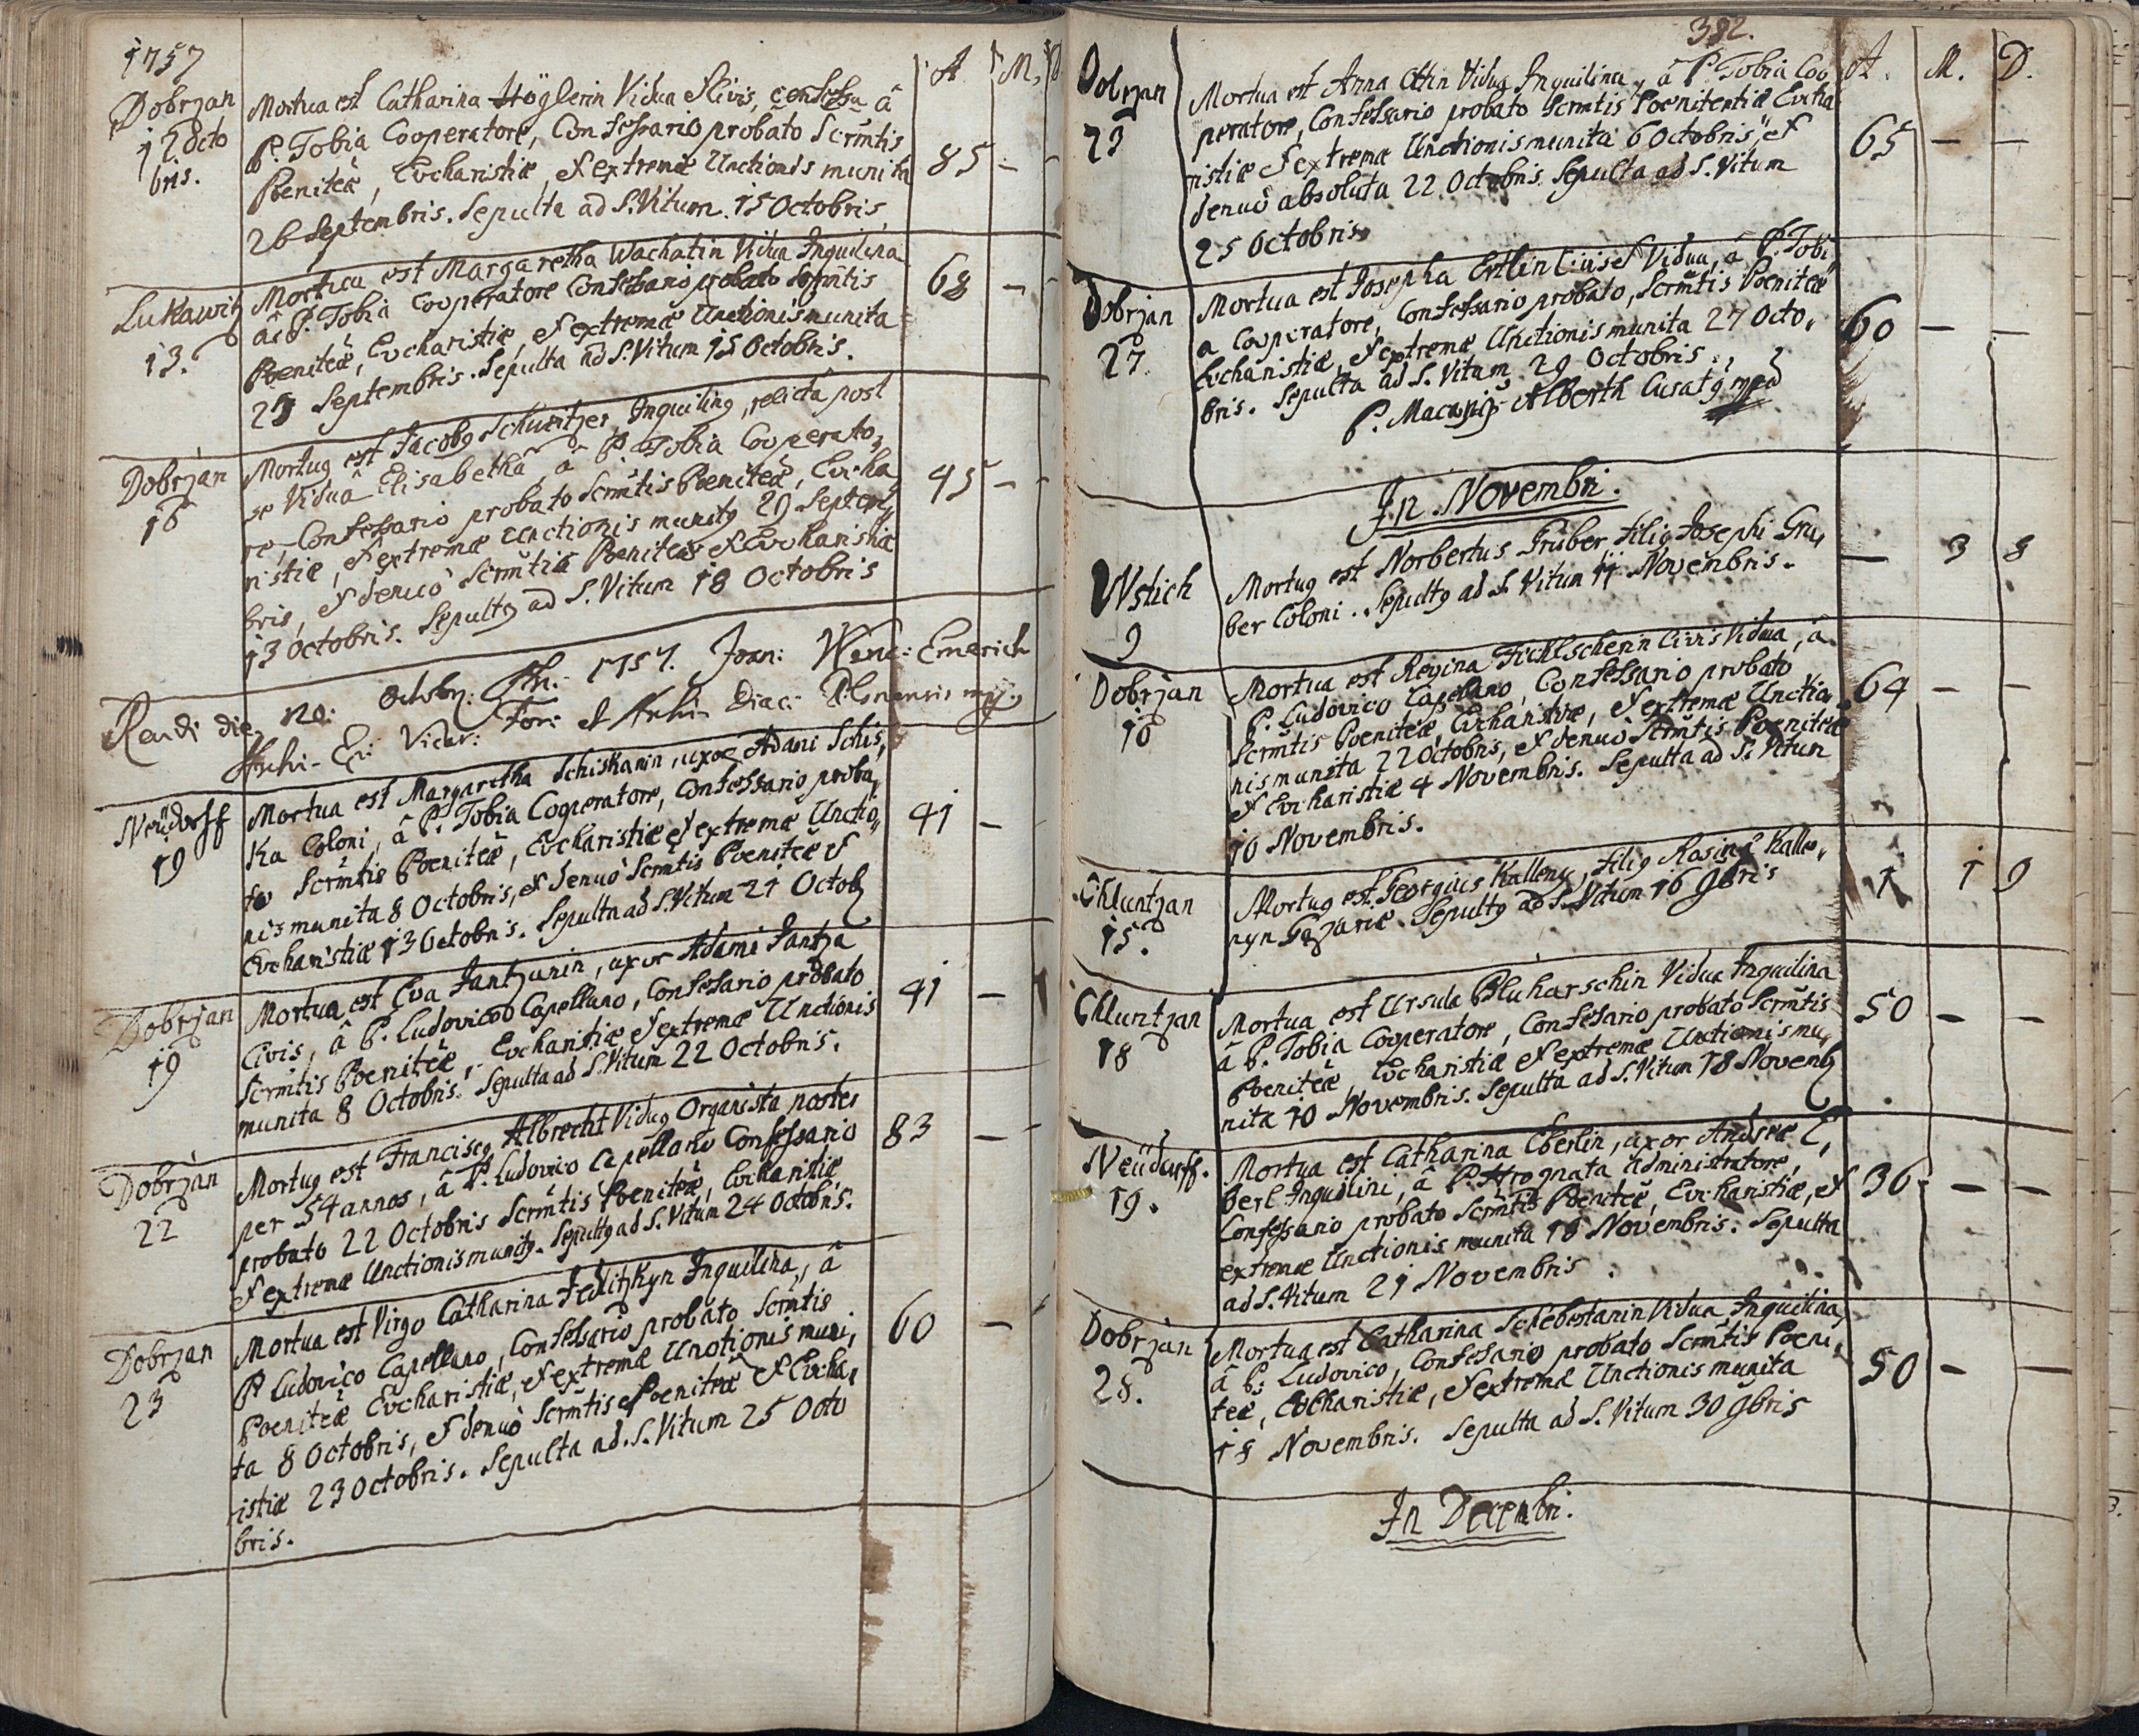 1757
A M, D
Dobrzan
12 Octo
bris.
Mortua est Catharina Höglerin Vidua Civis, confessa â
P. Tobia Cooperatore, Confessario probato Scrmtis
Poeniteae, Eucharistiae, et extremae Unctionis munita
26 Septembris. Sepulta ad S. Vitum 15 Octobris
85 - -
Lukawitz
13.
Mortua est Margaretha Wachatin Vidua Inquilina
â P. Tobia Cooperatore Confessario probato Scrmtis
Poeniteae, Eucharistiae, et extremae Unctionis munita
Septembris. Sepulta ad S. Vitum 15 Octobris.
68 - -
Dobrzan
16
Mortuq est Jacobq Schuritzer, Inquilinq, relicta post
se Vidua Elisabetha, â P. Tobia Coperato,
re, Confessario probato Scrmtis Poeniteae, Eucha
ristiae, et extremae Unctionis munitq 29 Septem,
bris, et denuò Scrmtis Poeniteae et Eucharistiae
13 Octobris. Sepultq ad S. Vitum 18 Octobris
45 - -
die 20: Octobr: 1757. Joan: Wenc: Emerich
Archi- Vicar: For: et Archi- Diac: Plsnensis mp.
Neüdorff
19
Mortua est Margaretha Schiskanin, uxor Adami Schis,
ka Coloni, â P. Tobia Cooperatore, Confessario proba,
to Scrmtis Poeniteae, Eucharistiae et extremae Unctio,
nis munita 8 Octobris, et denuò Scrmtis Poeniteae et
Eucharistiae 13 Octobris. Sepulta ad S. Vitum 21 Octob
41 -
Dobrzan
19
Mortua est Eva Jantzanin, uxor Adami Jantza
Civis, â P. Ludovico Capellano, Confessario probato
Scrmtis Poeniteae, Eucharistiae et extremae Unctionis
munita 8 Octobris. Sepulta ad S. Vitum 22 Octobris.
41 -
Dobrzan
22
Mortuq est Franciscq Albrecht Viduq Organista noster
per 54 annos, â P. Ludovico Capellano Confessario
probato 22 Octobris Scrmtis Poeniteae, Eucharistiae,
et extremae Unctionis munitq. Sepultq ad S. Vitum 24 Octobris.
83 - -
Dobrzan
23
Mortua est Virgo Catharina Inquilina, â
P. Ludovico Capellano, Confessario probato Scrmtis
Poeniteae Eucharistiae, et extremae Unctionis muni,
ta 8 Octobris, et denuò Scrmtis Poeniteae et Eucha,
ristiae 23 Octobris. Sepulta ad S. Vitum 25 Octo
bris.
60 -
382.
A. M. D.
Dobrzan
23
Mortua est Anna Vidua Inquilina, â P. Tobia Coo
peratore, Confessario probato Scrmtis Poenitentiae Eucha
ristiae et extremae Unctionis munita 6 Octobris, et
denuò absoluta 22 Octobris. Sepulta ad S. Vitum
25 Octobris.
65 - -
Dobrzan
27
Mortua est Josepha Ertlin Civis Vidua, â P. Tobi,
a Cooperatore, Confessario probato, Scrmtis Poeniteae
Eucharistiae, et extremae Unctionis munita 27 Octo,
bris. Sepulta ad S. Vitum 29 Octobris.
P. Macariq Alberth Curatq mpa
60 - -
In Novembri.
Wstich
9
Mortuq est Norbertus Gruber filiq Josephi Gru,
ber Coloni. Sepultq ad S. Vitum 11 Novembris.
- 3 8
Dobrzan
10
Mortua est Regina Fichtscherin Civis Vidua, â
P. Ludovico Capellano, Confessario probato
Scrmtis Poeniteae, Eucharistiae, et extremae Unctio,
nis munita 22 Octobris, et denuò Scrmtis Poeniteae
et Eucharistiae 4 Novembris. Sepulta ad S. Vitum
10 Novembris.
64 - -
Chluntzan
15.
Mortuq est Georgius Kalleny, filiq Rosinae Kalle,
nyn. Sepultq ad S. Vitum 16 9bris
1 1 9
Chluntzan
18
Mortua est Ursula Pluharschin Vidua Inquilina
â P. Tobia Cooperatore, Confessario probato Scrmtis
Poeniteae, Eucharistiae et extremae Unctionis mu,
nita 10 Novembris. Sepulta ad S. Vitum 18 Novemb
50 - -
Neüdorff.
19.
Mortua est Catharina Eberlin, uxor Andreae E,
berl Inquilini, â P. Hrognata Administratore,
Confessario probato Scrmtis Poeniteae, Eucharistiae, et
extremae Unctionis munita 18 Novembris. Sepulta
ad S. Vitum 21 Novembris
36 - -
Dobrzan
28.
Mortua est Catharina Schebestanin Vidua Inquilina,
â P. Ludovico, Confessario probato Scrmtis Poeni,
teae, Eucharistiae, et extremae Unctionis munita
18 Novembris. Sepulta ad S. Vitum 30 9bris
50 - -
In Decembri.